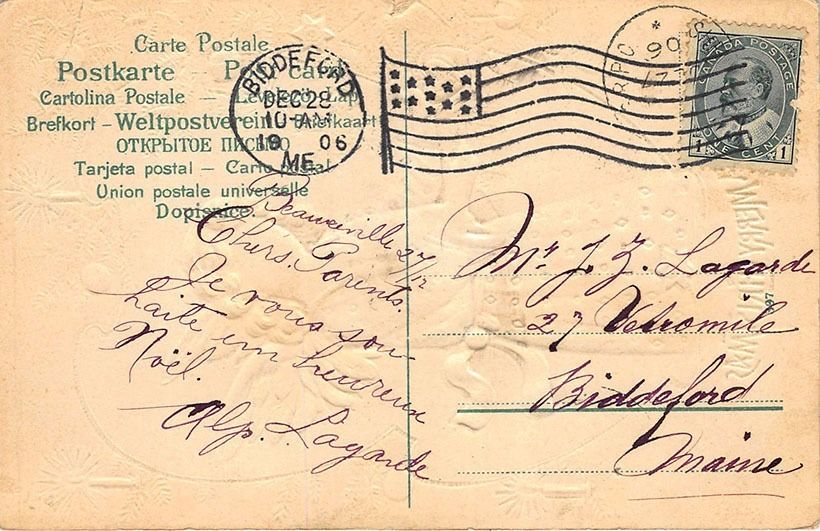 Carte Postale
Postkarte — Post card
Cartolina Postale — Levelező-Lap
Brefkort — Weltpostverein — Briefkaart
ОТКРЫТОЕ ПИСЬМО
Tarjeta postal — Carte postal
Union postale universelle
Dopisnice.
BIDDEFORD
DEC 28
10-AM
19 06
ME.
27
06
CANADA POSTAGE
ONE CENT
1 1
Beauceville 27/12
Chers Parents.
Je vous sou-
haite un heureux
Noël.
Alp. Lagarde
Mr J. Z. Lagarde
27 Vetromile
Biddeford
Maine